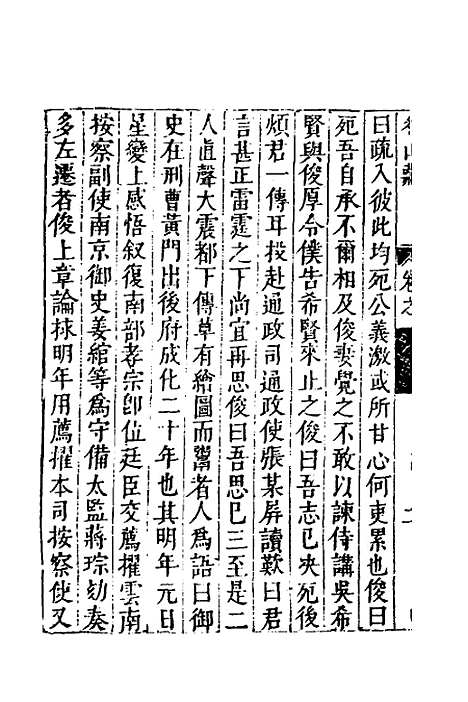 曰疏入彼此均死公義激或所甘心何吏累也俊曰
死吾自承不爾相及俊妻覺之不敢以諫侍講吳希
賢與俊厚令僕告希賢來止之俊曰吾志已决死後
煩君一傳耳投赴通政司通政使張某屏讀歎曰君
言甚正雷霆之下尚宜再思俊曰吾思已三至是二
人直聲大震都下傳草有繪圖而鬻者人為語曰御
史在刑曹黃門出後府成化二十年也其明年元日
星變上感悟叙復南部孝宗即位廷臣交薦擢雲南
按察副使南京御史姜綰等為守備太監蔣琮劾奏
多左遷者俊上章論捄明年用薦擢本司按察使又